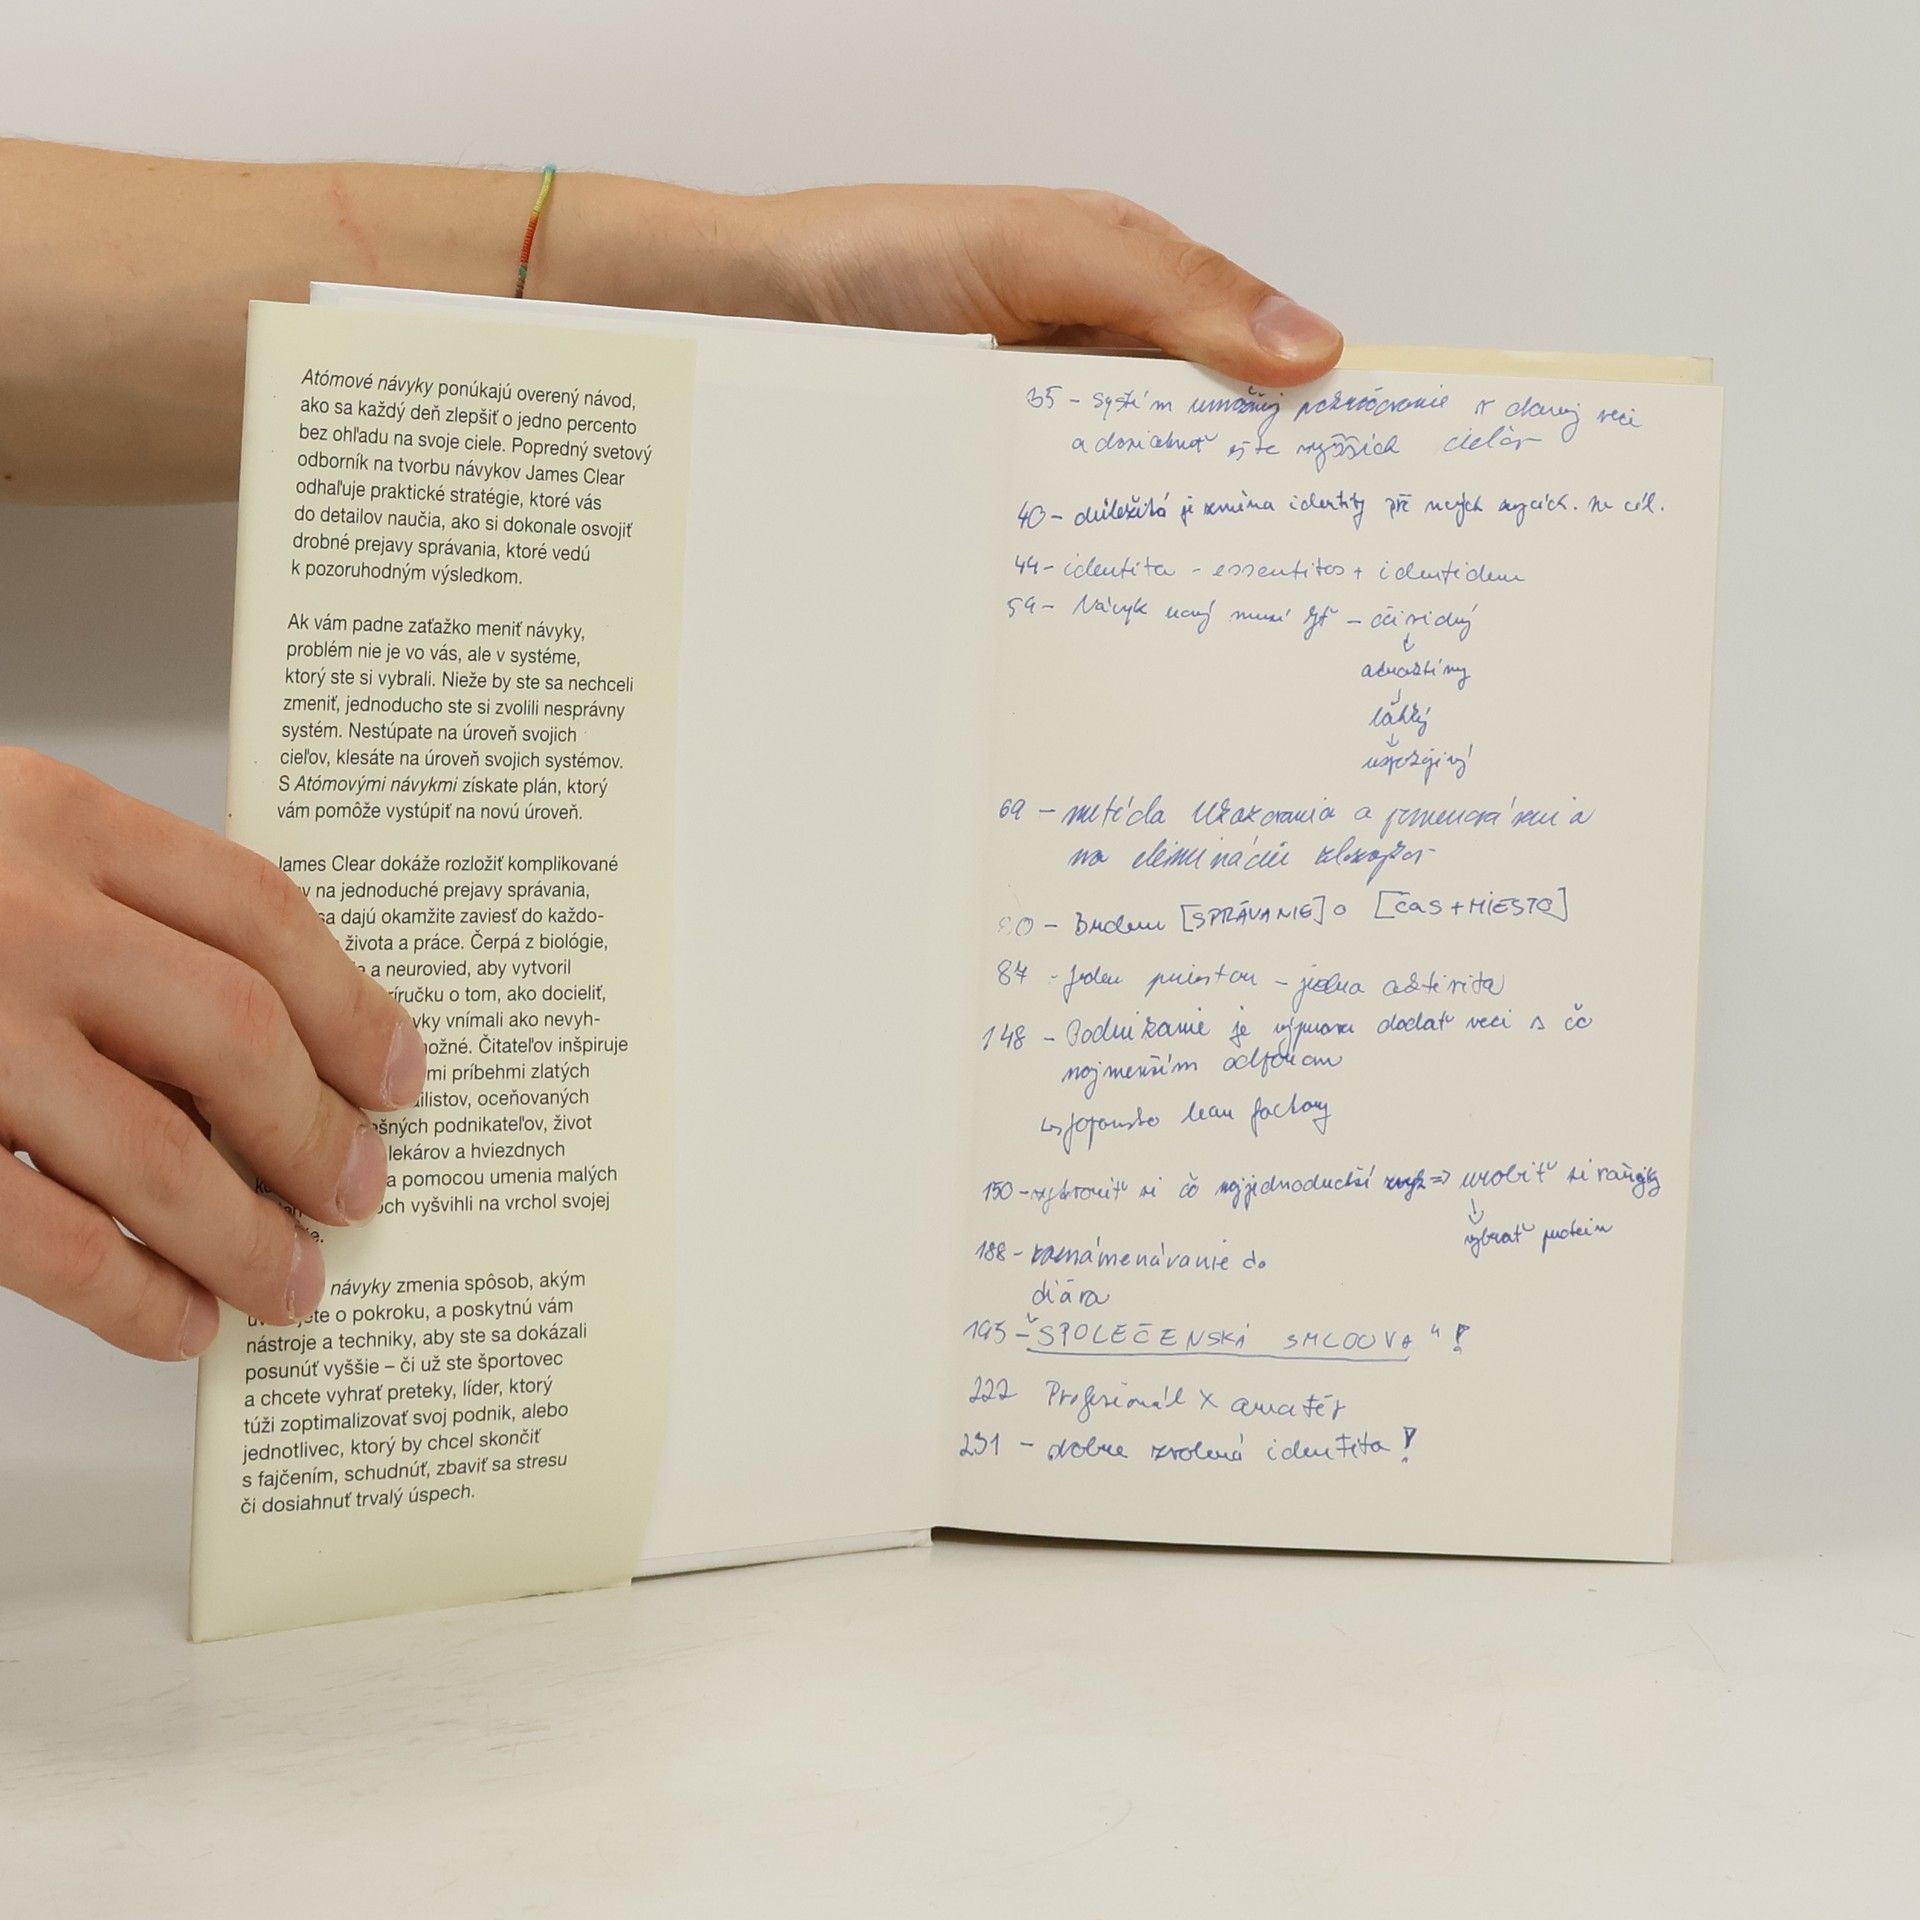 Atómové návyky ponúkajú overený návod,
ako sa každý deň zlepšiť o jedno percento
bez ohľadu na svoje ciele. Popredný svetový
odborník na tvorbu návykov James Clear
odhaľuje praktické stratégie, ktoré vás
do detailov naučia, ako si dokonale osvojiť
drobné prejavy správania, ktoré vedú
k pozoruhodným výsledkom.
Ak vám padne zaťažko meniť návyky,
problém nie je vo vás, ale v systéme,
ktorý ste si vybrali. Nieže by ste sa nechceli
zmeniť, jednoducho ste si zvolili nesprávny
systém. Nestúpate na úroveň svojich
cieľov, klesáte na úroveň svojich systémov.
S Atómovými návykmi získate plán, ktorý
vám pomôže vystúpiť na novú úroveň.
James Clear dokáže rozložiť komplikované
na jednoduché prejavy správania,
sa dajú okamžite zaviesť do každo-
života a práce. Čerpá z biológie,
a neurovied, aby vytvoril
o tom, ako docieliť,
vnímali ako nevyh-
Čitateľov inšpiruje
príbehmi zlatých
oceňovaných
podnikateľov, život
lekárov a hviezdnych
a pomocou umenia malých
vyšvihli na vrchol svojej
návyky zmenia spôsob, akým
o pokroku, a poskytnú vám
nástroje a techniky, aby ste sa dokázali
posunúť vyššie – či už ste športovec
a chcete vyhrať preteky, líder, ktorý
túži zoptimalizovať svoj podnik, alebo
jednotlivec, ktorý by chcel skončiť
s fajčením, schudnúť, zbaviť sa stresu
či dosiahnuť trvalý úspech.
35 - systém pokračovanie v danej veci
a dosiahnuť ešte vyšších cieľov
40 - důležitá je změna identity při nových . Ne cíl.
44 - identita - essentitas + identidem
59 - Návyk nový musí byť -
atraktívny
ľahký
uspokojivý
69 - metóda ukazovania a pomenovávania
na elimináciu zlozvykov
- Budem [SPRÁVANIE] o [ČAS + MIESTO]
87 - jeden priestor - jedna aktivita
148 - Podnikanie je dodať veci s čo
najmenším odporom
lean factory
150 - vytvoriť si čo najjednoduchší zvyk => urobiť si raňajky
vybrať protein
188 - zaznámenávanie do
diára
195 - "SPOLEČENSKÁ SMLOUVA"!
222 Profesionál X amatér
231 - dobre zvolená identita!